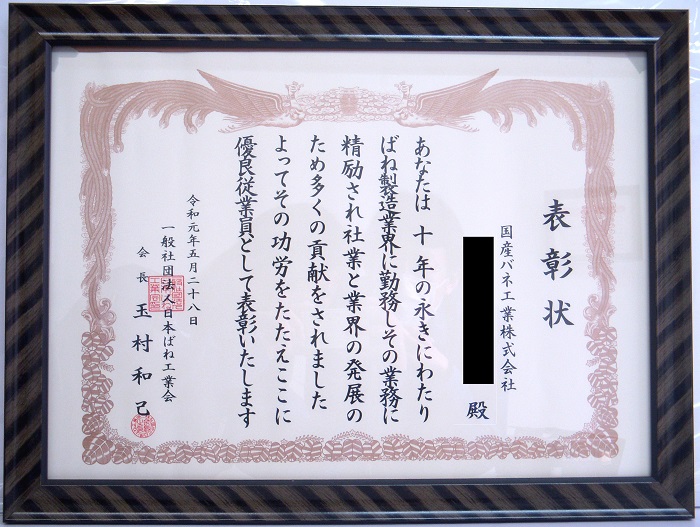 表彰状
国産バネ工業株式会社
殿
あなたは十年の永きにわたり
ばね製造業界に勤務しその業務に
精励され社業と業界の発展の
ため多くの貢献をされました
よってその功労をたたえここに
優良従業員として表彰いたします
令和元年五月二十八日
一般社団法人日本ばね工業会
会長 玉村和己